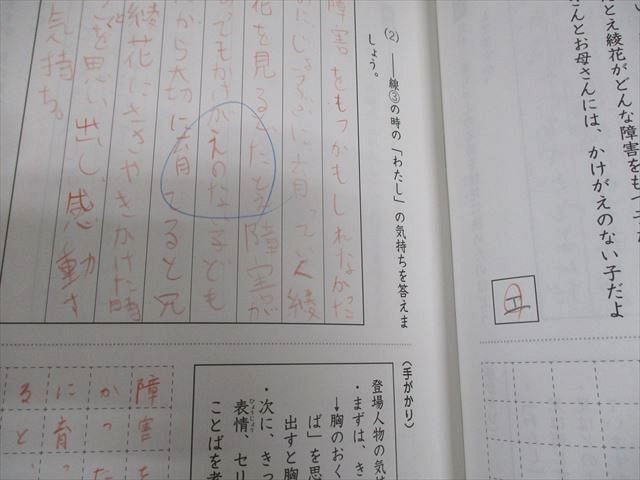 とえ綾花がどんな障害をもって
さんとお母さんには、かけがえのない子だよ
(2) ――線③の時の「わたし」の気持ちを答えま
しょう。
障害をもつかもしれなかった
のにじょうぶに育っていく綾
花を見るとたとえ障害が
あってもかけがえのない子ども
だから大切に育てると兄
綾花にささやきかけた時
を思い出し感動す
気持ち。
(手がかり)
登場人物の気持
・まずは、き
→胸のおく
ば」を思
出すと胸
・次に、きっ
表情、セリ
ひょうじょう
ことばを考
障害を
かった
に育っ
ると